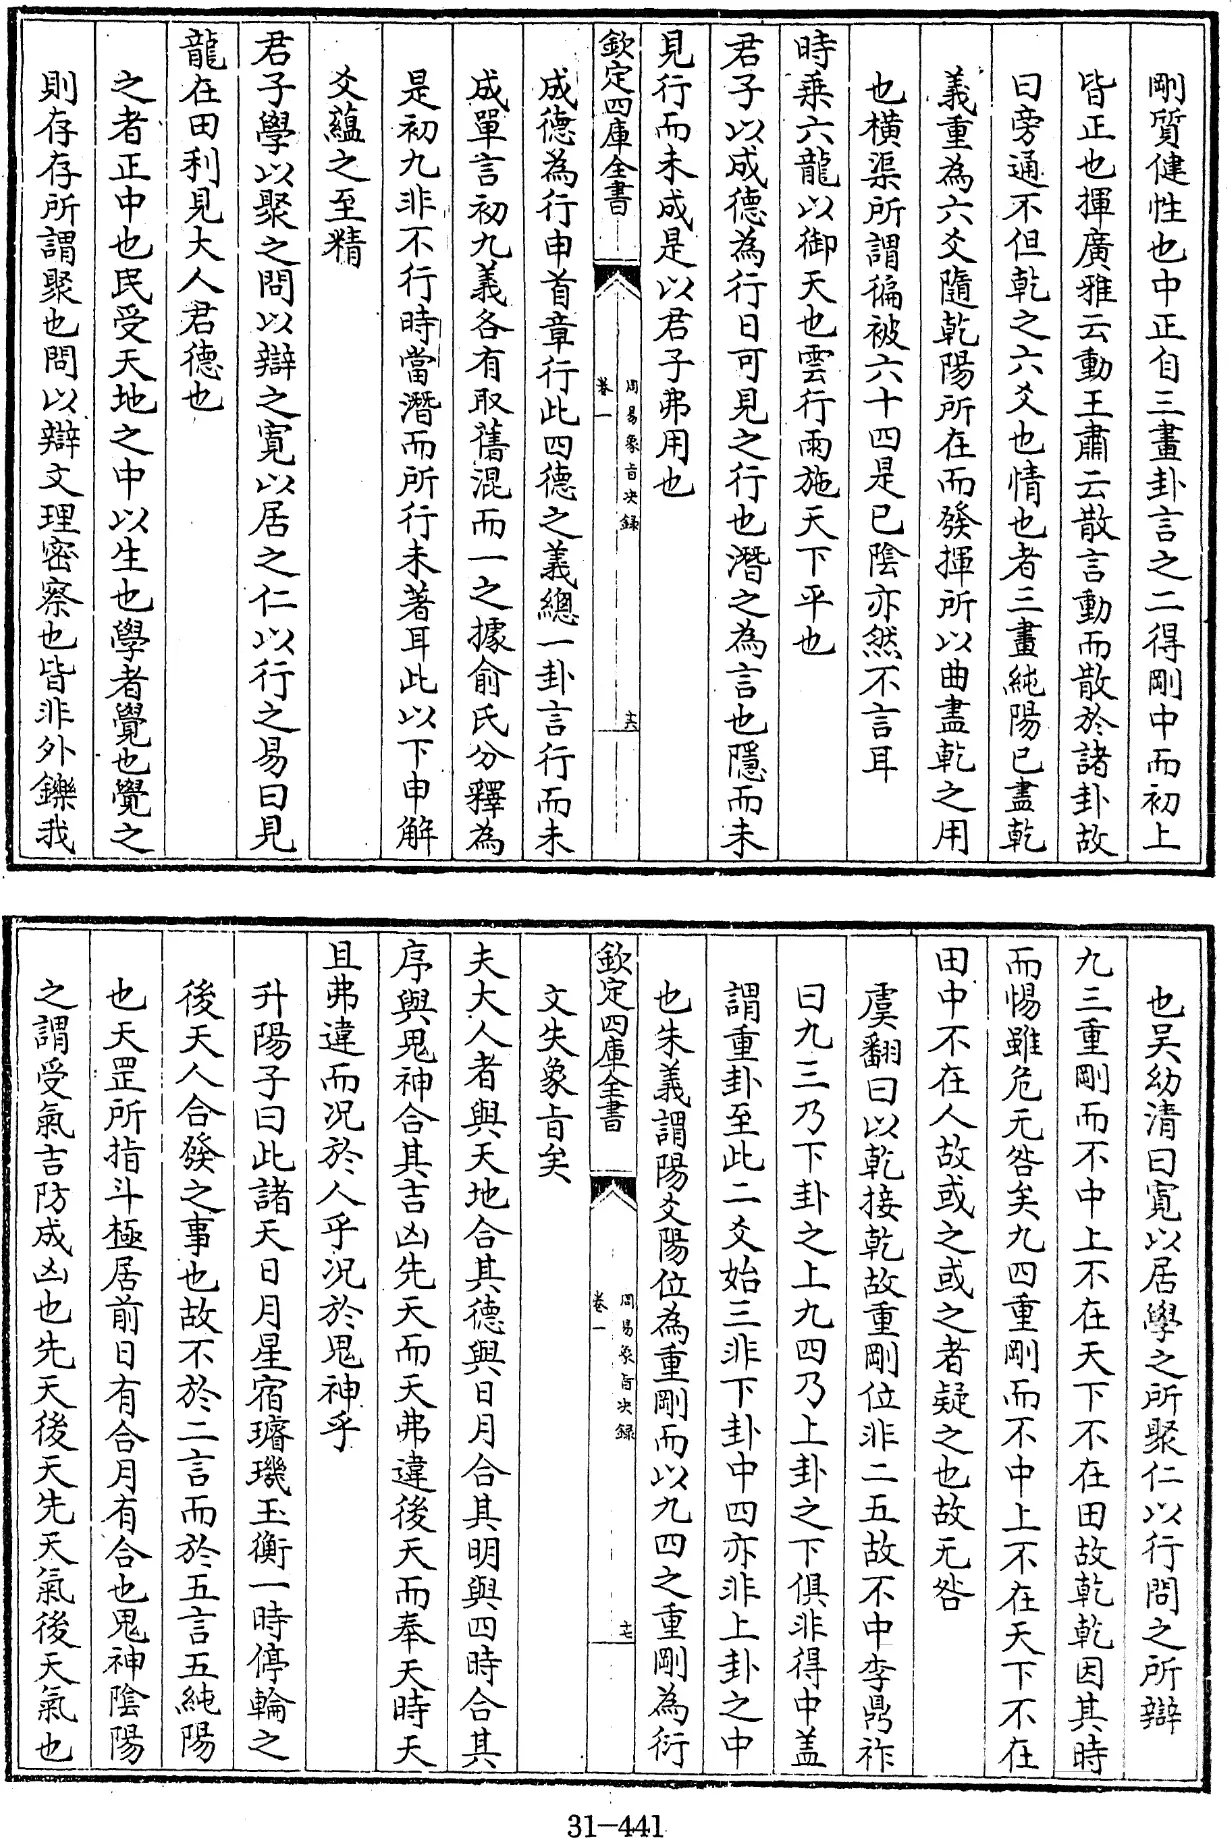 剛質健性也中正自三畫卦言之二得剛中而初上
皆正也揮廣雅云動王肅云散言動而散於諸卦故
曰旁通不但乾之六爻也情也者三畫純陽已盡乾
義重為六爻隨乾陽所在而發揮所以曲盡乾之用
也橫渠所謂徧被六十四是已陰亦然不言耳
時乘六龍以御天也雲行雨施天下平也
君子以成德為行日可見之行也潛之為言也隱而未
見行而未成是以君子弗用也
欽定四庫全書
周易象旨決錄
卷一
十六
成德為行申首章行此四德之義總一卦言行而未
成單言初九義各有取舊混而一之據俞氏分釋為
是初九非不行時當潛而所行未著耳此以下申解
爻蘊之至精
君子學以聚之問以辯之寬以居之仁以行之易曰見
龍在田利見大人君德也
之者正中也民受天地之中以生也學者覺也覺之
則存存所謂聚也問以辯文理密察也皆非外鑠我
也吴幼清曰寬以居學之所聚仁以行問之所辯
九三重剛而不中上不在天下不在田故乾乾因其時
而惕雖危无咎矣九四重剛而不中上不在天下不在
田中不在人故或之或之者疑之也故无咎
虞翻曰以乾接乾故重剛位非二五故不中李鼎祚
曰九三乃下卦之上九四乃上卦之下俱非得中盖
謂重卦至此二爻始三非下卦中四亦非上卦之中
也朱義謂陽爻陽位為重剛而以九四之重剛為衍
欽定四庫全書
周易象旨決錄
卷一
十七
文失象旨矣
夫大人者與天地合其德與日月合其明與四時合其
序與鬼神合其吉凶先天而天弗違後天而奉天時天
且弗違而况於人乎况於鬼神乎
升陽子曰此諸天日月星宿璿璣玉衡一時停輪之
後天人合發之事也故不於二言而於五言五純陽
也天罡所指斗極居前日有合月有合也鬼神陰陽
之謂受氣吉防成凶也先天後天先天氣後天氣也
31-441